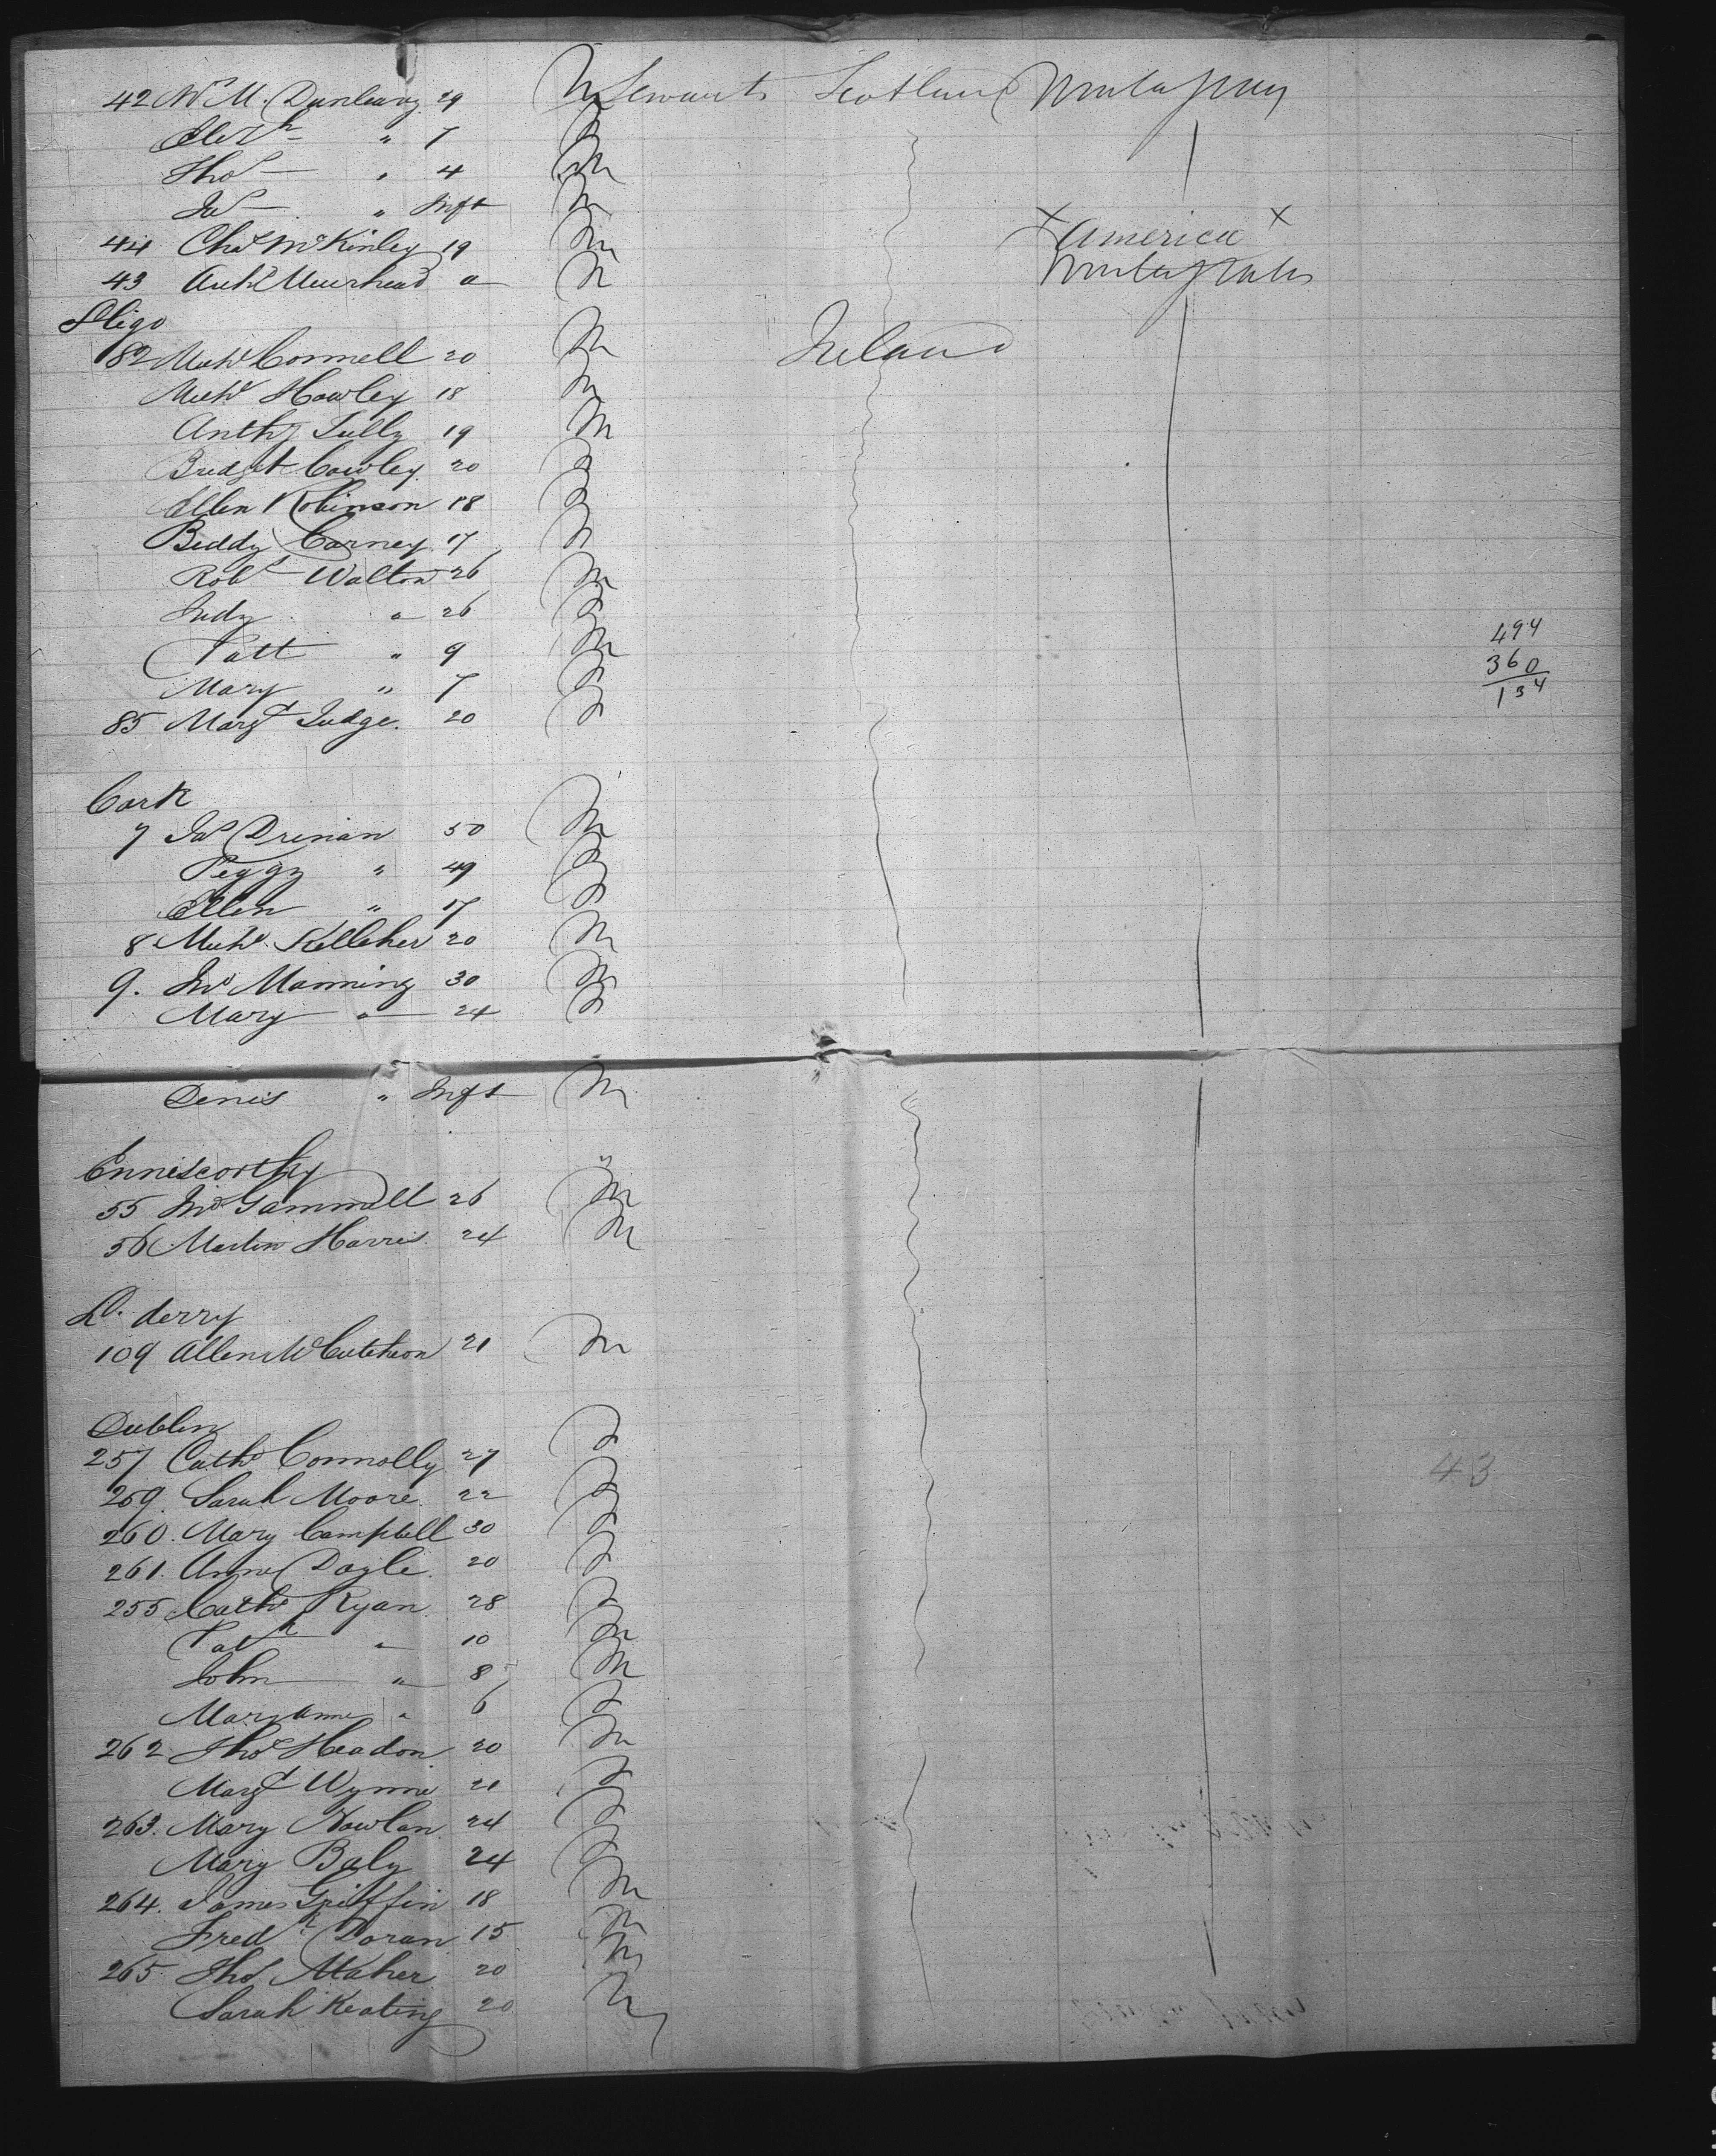 42 Wm M. Dunleavy 29 Servants Scotland
Elizth " 7
Thos " 4 M
Jas " Inft M
44 Chas McKinley 19 M × America ×
43 Archd Muirhead a
Sligo
82 Michl Connell 20 M Ireland
Michl Howley 18 M
Anthy Tully 19 M
Bridget Cowley 20
Ellen Robinson 18
Biddy Carney 17
Robt Walton 26 M
Judy " 26
Patt " 9 M
Mary " 7
85 Margt Judge. 20
494
360
134
Cork
7 Jas Drinan 50 M
Peggy " 49
Ellen " 17
8 Michl Kelleher 20 M
9. Jno Manning 30 M
Mary " 24
Denis " Inft M
Enniscorthy "
55 Jno Gammell 26 M
56 Martin Harris 24 M
Lo. derry
109 Allen McCutcheon 21 M
Dublin
257 Cathe Connolly 27
43
259. Sarah Moore 22
260. Mary Campbell 30
261. Anne Doyle. 20
255 Cathe Ryan 28
Patk " 10 M
John " 8 M
Maryanne " 6
262 Thos Headon 20 M
Margt Wynne 21
263. Mary Nowlan 24
Mary Baly 24
264. James Griffin 18 M
Fredk Doran 15 M
265 Thos Maher 20 M
Sarah Keating 20